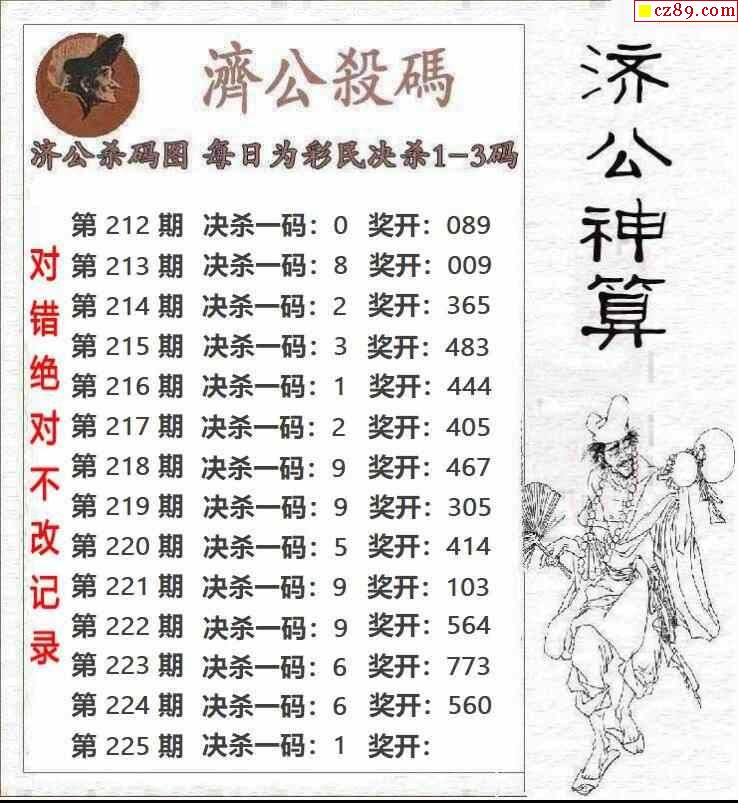 cz89.com
濟公殺碼
济公杀码图 每日为彩民决杀1-3码
第 212 期 决杀一码：0 奖开：089
第 213 期 决杀一码：8 奖开：009
第 214 期 决杀一码：2 奖开：365
第 215 期 决杀一码：3 奖开：483
第 216 期 决杀一码：1 奖开：444
第 217 期 决杀一码：2 奖开：405
第 218 期 决杀一码：9 奖开：467
第 219 期 决杀一码：9 奖开：305
第 220 期 决杀一码：5 奖开：414
第 221 期 决杀一码：9 奖开：103
第 222 期 决杀一码：9 奖开：564
第 223 期 决杀一码：6 奖开：773
第 224 期 决杀一码：6 奖开：560
第 225 期 决杀一码：1 奖开：
对错绝对不改记录
济公神算